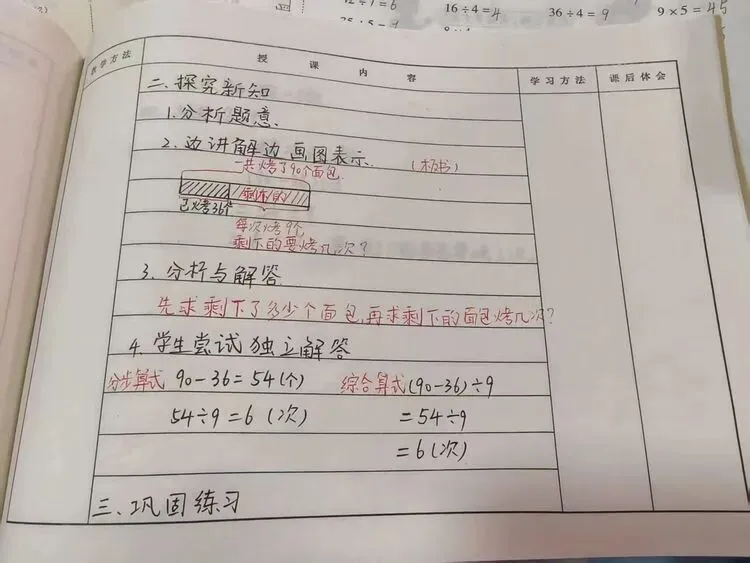 12÷7=6
16÷4=4
36÷4=9
9×5=45
教学方法 授课内容 学习方法 课后体会
二、探究新知
1.分析题意
2、边讲解边画图表示 (板书)
一共烤了90个面包
剩下的
已烤36个
每次烤9个
剩下的要烤几次?
3、分析与解答
先求剩下了多少个面包,再求剩下的面包烤几次?
4、学生尝试独立解答
分步算式 90-36=54(个) 综合算式(90-36)÷9
54÷9=6(次) =54÷9
=6(次)
三、巩固练习